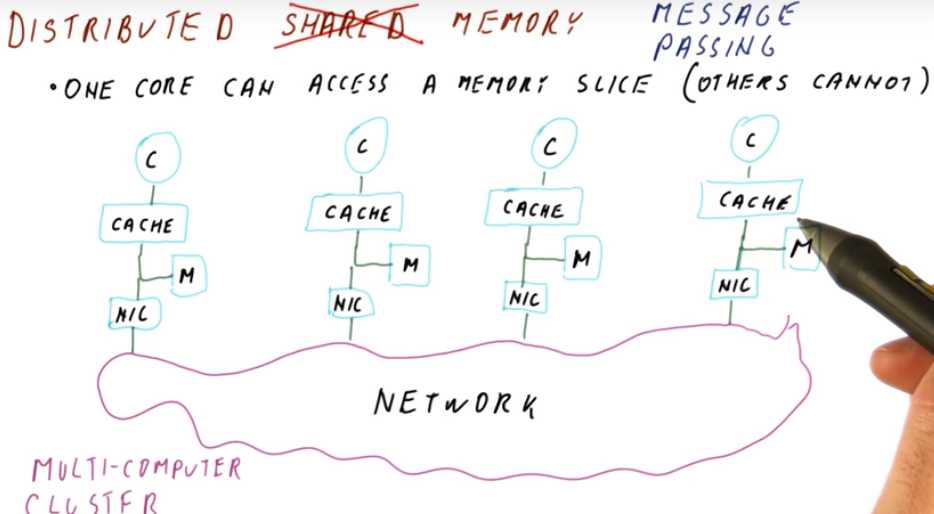 DISTRIBUTED SHARED MEMORY MESSAGE PASSING
• ONE CORE CAN ACCESS A MEMORY SLICE (OTHERS CANNOT)
C C C C
CACHE CACHE CACHE CACHE
M M M M
NIC NIC NIC NIC
NETWORK
MULTI-COMPUTER
CLUSTER